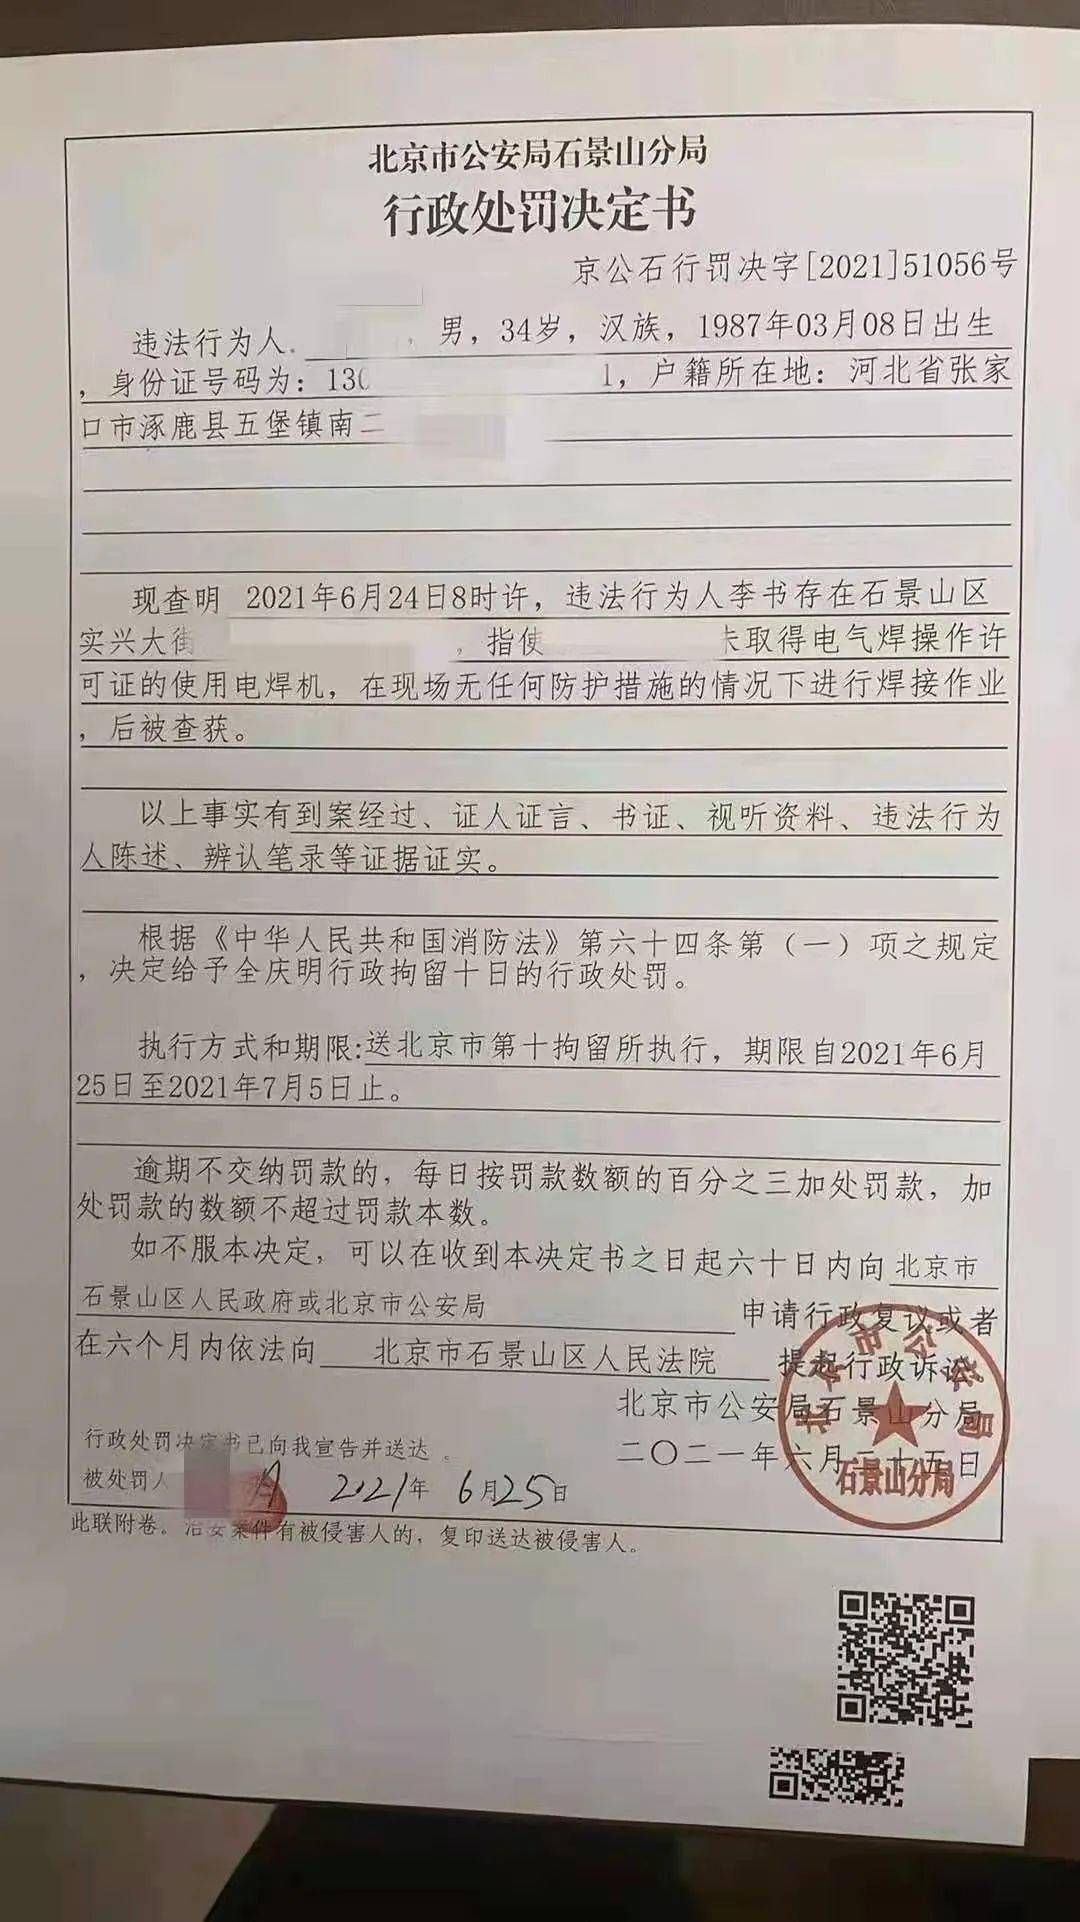 北京市公安局石景山分局
行政处罚决定书
京公石行罚决字[2021]51056号
违法行为人 ，男，34岁，汉族，1987年03月08日出生
，身份证号码为：130 1，户籍所在地：河北省张家
口市涿鹿县五堡镇南二
现查明 2021年6月24日8时许，违法行为人李书存在石景山区
实兴大街 ，指使 未取得电气焊操作许
可证的使用电焊机，在现场无任何防护措施的情况下进行焊接作业
，后被查获。
以上事实有到案经过、证人证言、书证、视听资料、违法行为
人陈述、辨认笔录等证据证实。
根据《中华人民共和国消防法》第六十四条第（一）项之规定
，决定给予全庆明行政拘留十日的行政处罚。
执行方式和期限:送北京市第十拘留所执行，期限自2021年6月
25日至2021年7月5日止。
逾期不交纳罚款的，每日按罚款数额的百分之三加处罚款，加
处罚款的数额不超过罚款本数。
如不服本决定，可以在收到本决定书之日起六十日内向北京市
石景山区人民政府或北京市公安局 申请行政复议或者
在六个月内依法向 北京市石景山区人民法院 提起行政诉讼
北京市公安局石景山分局
二〇二一年六月二十五日
北京市公安局
石景山分局
行政处罚决定书已向我宣告并送达。
被处罚人 2021年 6月25日
此联附卷。治安案件有被侵害人的，复印送达被侵害人。